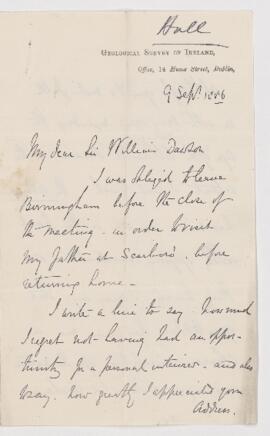 Hull
GEOLOGICAL SURVEY OF IRELAND,
Office, 14 Hume Street, Dublin,
9 Sept. 1886
My dear Sir William Dawson
I was obliged to leave
Birmingham before the close of
the meeting - in order to visit
my father at Scarboro', before
returning home -
I write a line to say how much
I regret not having had an oppor-
tunity for a personal interview - and also
to say, how greatly I appreciated your
Address.